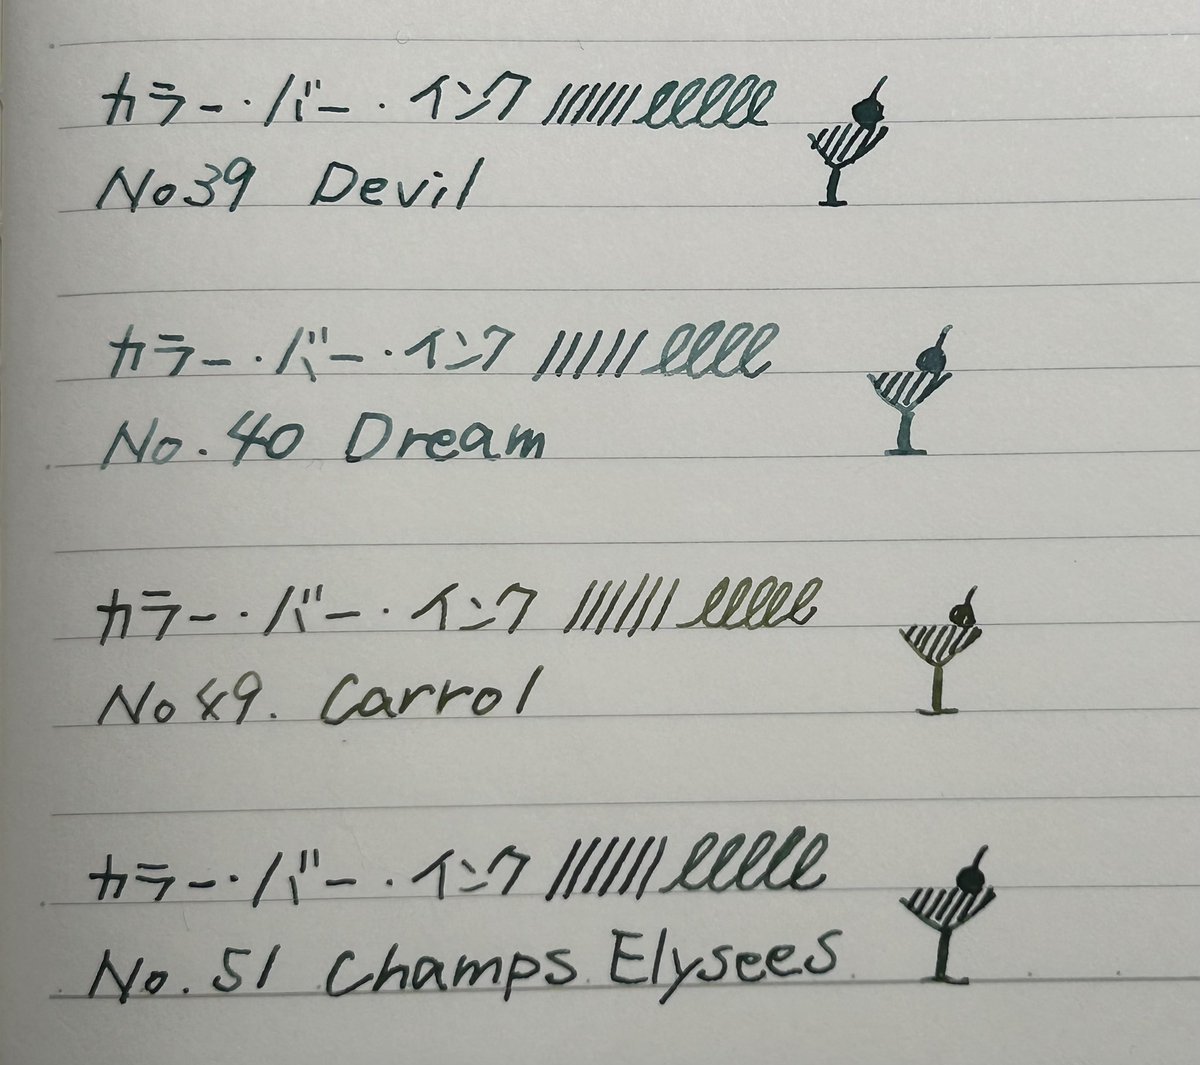 カラー・バー・インク
No39 Devil
カラー・バー・インク
No.40 Dream
カラー・バー・インク
No49. Carrol
カラー・バー・インク
No.51 Champs Elysees